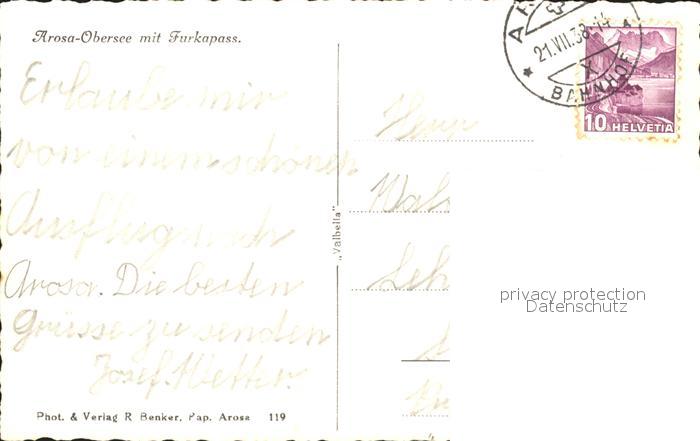 Arosa-Obersee mit Furkapass.
Erlaube mir
von einem schönen
Ausflug nach
Arosa. Die besten
Grüsse zu senden
Josef
Phot. & Verlag R Benker, Pap. Arosa 119
„Valbella"
21.VII.38-14
BAHNHOF
10 HELVETIA
Herr
privacy protection
Datenschutz